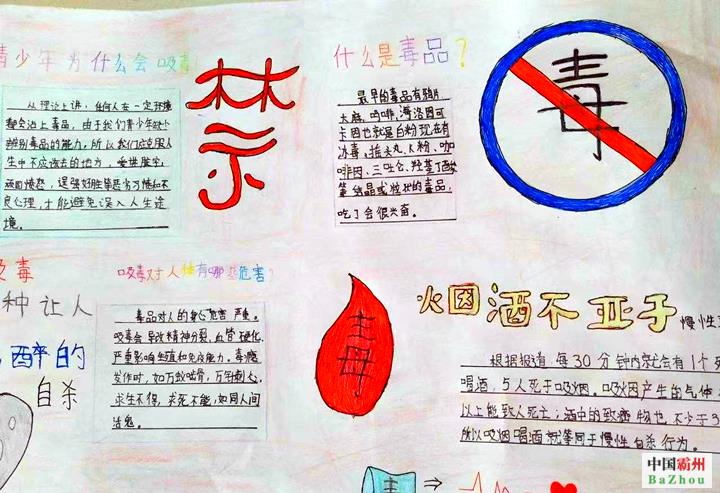 青少年为什么会吸毒
从理论上讲，任何人在一定环境
都会沾上毒品，由于我们青少年缺少
辨别毒品的能力，所以我们应克服人
生中不应该去的地方，
顽固愤怒，逞强好胜等恶劣习惯和不
良心理，才能避免误入人生迷
境。
禁
什么是毒品？
最早的毒品有鸦片
大麻，吗啡，海洛因可
卡因也就是白粉现在有
冰毒，摇头丸、K粉、咖
啡因、三唑仑、羟基丁酸
等结晶或粉状的毒品，
吃了会很兴奋。
毒
吸毒
种让人
醉的
自杀
吸毒对人体有哪些危害？
毒品对人的身心危害严重。
吸毒会导致精神分裂，血管硬化，
严重影响生殖和免疫能力。毒瘾
发作时，如万蚁啮骨，万针刺心，
求生不得，求死不能，如同人间
活鬼。
毒
火因酒不亚于慢性
根据报道，每30分钟内就会有1个
喝酒，5人死于吸烟。吸火因产生的气体
以上能致人死亡；酒中的致癌物也不少于3
所以吸烟喝酒就等同于慢性自杀行为。
毒
中国霸州
BaZhou